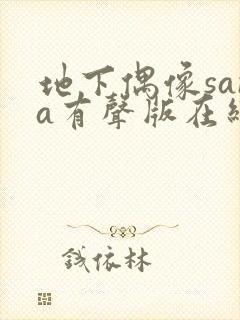 地下偶像sa
a有聲版在
钱依林